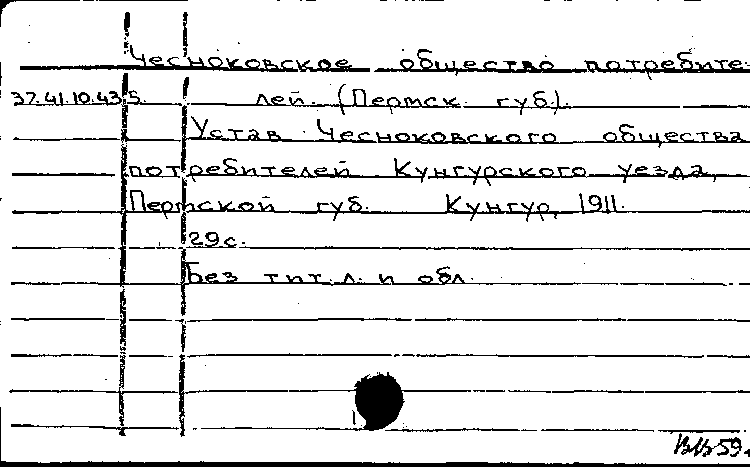 Чесноковское общество потребите-
37.41.10.43.5. лей. (Пермск. губ.).
Устав Чесноковского общества
потребителей Кунгурского уезда,
Пермской губ. Кунгур, 1911.
29 с.
Без тит. л. и обл.
59.